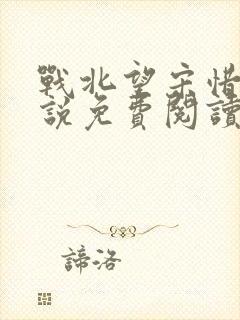 戰北望宋惜
說免費閱讀
諦洛